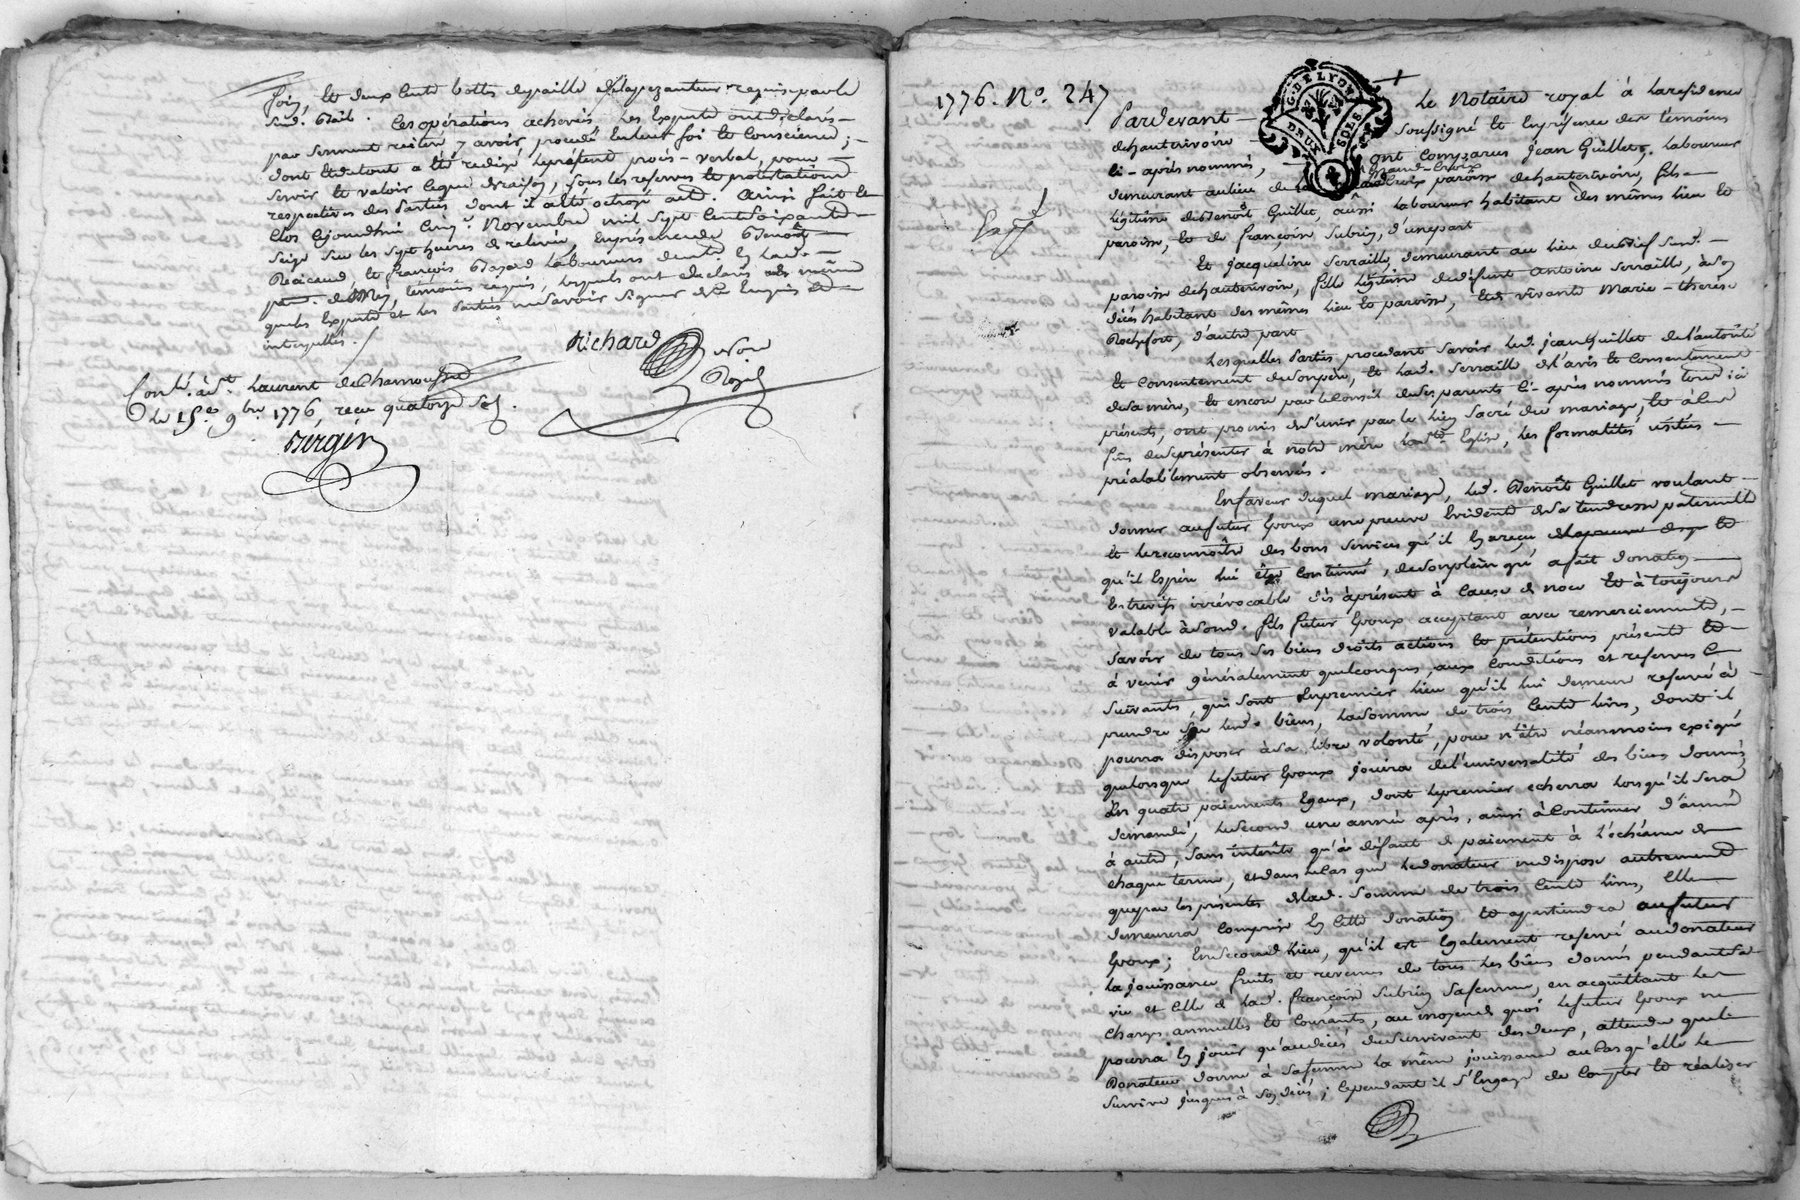 foin, et deux cents bottes de paille de la pezanteur requise par le
sud. Bail. Ces opérations achevées les Experts ont déclarés
par serment réitéré y avoir procédé en leur foi et conscience;
dont et de tout a été rédigé le présent procès-verbal, pour
servir et valoir ce que de raison, sous les reserves et protestations
respectives des Parties dont il a été octroyé acte. Ainsi fait et
clos cejourdhui cinq. Novembre mil sept cent soixante
seize sur les sept heures de relevée, en présence de Benoît
et françois laboureurs
témoins requis, lesquels ont declarés de même
que les Experts et les Parties ne savoir signer de ce enquis et
interpellés.
Richard
Not.e
Royal
Conl. à St. Laurent de Chamousset
Le 15.e 9.bre 1776, reçu quatorze sols.
1776. N.o 247
G. DE LYON
DEUX SOLS
Pardevant Le Notaire royal à la residence
de hauterivoire soussigné et en présence des témoins
ci-après nommés, ont comparus jean Guillet, laboureur
demurant au lieu de la grand-Croix paroisse de hauterivoire, fils
légitime de Benoît Guillet, aussi laboureur habitant des mêmes lieu et
paroisse, et de françoise Subrin, d'une part
Et jacqueline Serraille, demurant au lieu du Bief susd.
paroisse de hauterivoire, fille légitime de defunt Antoine Serraille, à son
décès habitant des mêmes lieu et paroisse, et de vivante Marie-therese
Rochefort, d'autre part
Lesquelles Parties procedant savoir led. jean Guillet de l'autorité
et consentement de son père, et lad. Serraille de l'avis et consentement
de sa mère, et encore par le Conseil de ses parents ci-après nommés tous ici
présents, ont promis de s'unir par le lien sacré du mariage, et à ces
fins de se présenter à notre mère Sainte Eglise, les formalités usitées
préalablement observées.
En faveur duquel mariage, led. Benoît Guillet voulant
donner au futur époux une preuve évidente de sa tendresse paternelle
et le reconnoître des bons services qu'il en a reçu et
qu'il espère lui être continué, de son plein gré a fait donation
entrevifs irrévocable dès àprésent à cause de noce et à toujours
valable à sond. fils futur époux acceptant avec remerciements,
savoir de tous ses biens droits actions et prétentions présents et
à venir généralement quelconques, aux conditions et reserves
suivants, qui sont en premier lieu qu'il lui demeure reservé à
prendre sur lesd. biens, la somme de trois cents livres, dont il
pourra disposer à sa libre volonté, pour n'être néanmoins exigée
que lorsque le futur époux jouira de l'universalité des biens donnés,
en quatre paiements égaux, dont le premier echerra lorsqu'il sera
demandé, le second une année après, ainsi à continuer d'année
à autre, sans interêts qu'à défaut de paiement à l'échéance de
chaque terme, et dans le cas que le donateur ne dispose autrement
que par les présentes de lad. somme de trois cents livres, elle
demeurera comprise en cette donation et apartiendra au futur
époux; en second lieu, qu'il est également reservé au donateur
la jouissance fruits et revenus de tous les biens donnés pendant sa
vie et celle de lad. françoise Subrin sa femme, en acquittant les
charges annuelles et courantes, au moyen de quoi le futur époux ne
pourra en jouir qu'au decès du survivant des deux, attendu que le
Donateur donne à sa femme la même jouissance au cas qu'elle le
survive jusques à son décès; cependant il s'engage de compter et réaliser